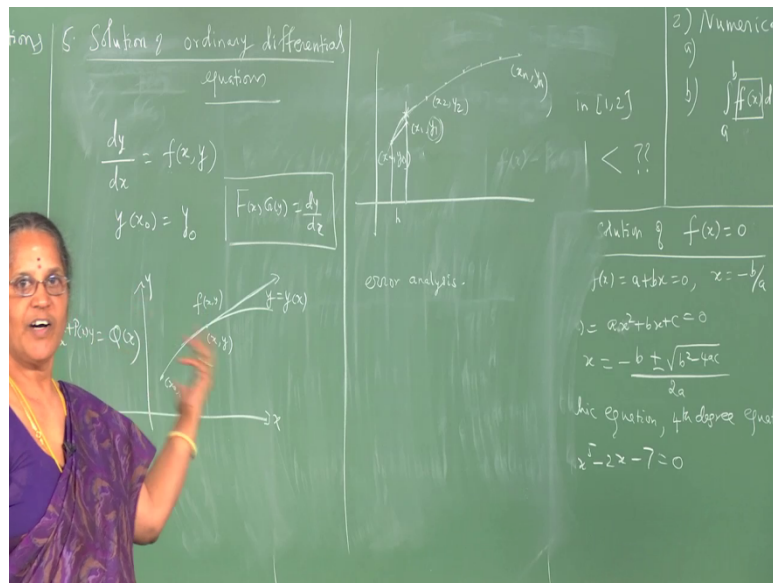 5. Solution of ordinary differential
equations
dy/dx = f(x, y)
y(x₀) = y₀
F(x)G(y) = dy/dx
y
f(x,y)
y = y(x)
(x, y)
+P(x)y = Q(x)
x
(xₙ, yₙ)
(x₂, y₂)
(x₁, y₁)
h
error analysis.
in [1,2]
1 < ??
2) Numerica
a)
b) ∫ₐᵇ f(x) d
Solution of f(x) = 0
f(x) = a + bx = 0, x = -b/a
) = ax² + bx + c = 0
x = -b ± √(b² - 4ac) / 2a
bic equation, 4th degree equa
x⁵ - 2x - 7 = 0